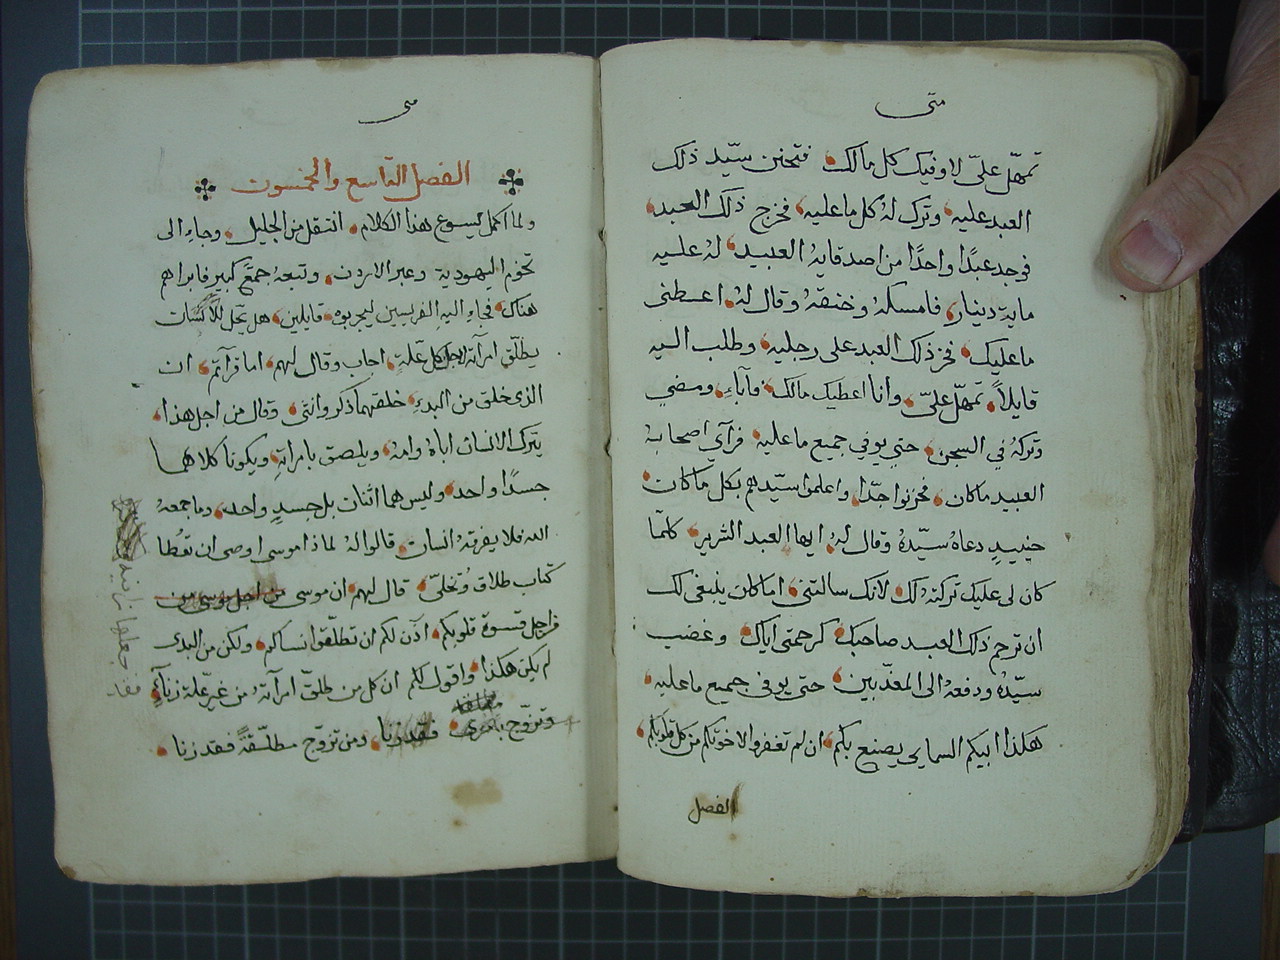 متى
تمهّل علىّ لاوفيك كل مالك. فتحنن سيّد ذلك
العبد عليه، وترك لهُ كل ما عليه، فخرج ذلك العبد،
فوجد عبدًا واحدًا من اصدقايهُ العبيد، لهُ عليه
ماية دينار، فامسكهُ وخنقهُ وقال لهُ، اعطنى
ما عليك، فخر ذلك العبد على رجليه، وطلب اليه
قايلاً، تمهّل علىّ، وانا اعطيك مالك، فآباء، ومضي
وتركهُ في السجن، حتي يوفي جميع ما عليه، فرآى اصحابهُ
العبيد ما كان، فحزنوا جدّا، واعلموا سيّدهم بكل ما كان،
حينيدٍ دعاهُ سيّدهُ وقال لهُ، ايها العبد الشرير، كلمّا
كان لى عليك تركتهُ لك، لانك سالتنى، اما كان ينبغى لك
ان ترحم ذلك العبد صاحبك، كرحمتى اياك، وغضب
سيّدهُ ودفعهُ الى المعذّبين، حتى يوفى جميع ما عليه،
هكذا ابيكم السمايي يصنع بكم، ان لم تغفروا لاخوتكم من كل قلوبكم،
الفصل
متى
الفصل التاسع والخمسون
ولما اكمل يسوع هذا الكلام، انتقل من الجليل، وجاء الى
تخوم اليهودية وعبر الاردن، وتبعهُ جمع كبير فابراهم
هناك، فجاء اليهِ الفريسين ليجربوه، قايلين، هل يحل للانسان
يطلّق امرآته لاجل كل علّةٍ، اجاب وقال لهم، اما قرآتم، ان
الذى خلق من البدء، خلقهما ذكر وانثى، وقال من اجل هذا،
يترك الانسان اباهُ وامهُ، ويلصق بامراتهِ، ويكونا كلاهما
جسدًا واحد، وليس هما اثنان بل جسدٍ واحد، وما جمعهُ
الله فلا يفرقهُ انسان، قالوا لهُ لماذا موسى اوصى ان تعُطا
كتاب طلاق وتُخلىّ، قال لهم، ان موسى من اجل
فراجل قسوة قلوبكم، اذن لكم ان تطلّقوا نساكم، ولكن من البدى
لم يكن هكذا، واقول لكم ان كل من طلّق امرآتهُ من غير علة زناءٍ،
وتزوّج باخرى، فقد زنا، ومن تزوّج مطلّقةً فقد زنا،
فقد جعلها زانيه